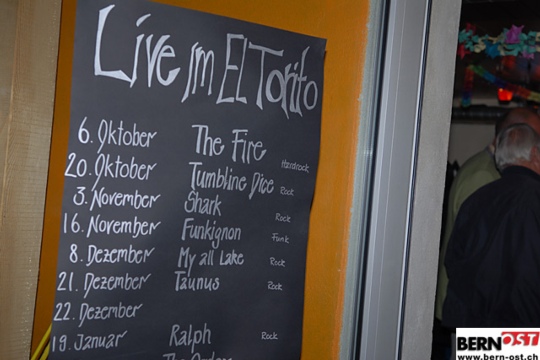 Live im El Torito
6. Oktober The Fire Hardrock
20. Oktober Tumbline Dice Rock
3. November Shark Rock
16. November Funkignon Funk
8. Dezember My all Lake Rock
21. Dezember Taunus Rock
22. Dezember
19. Januar Ralph Rock
The
BERNOST
www.bern-ost.ch